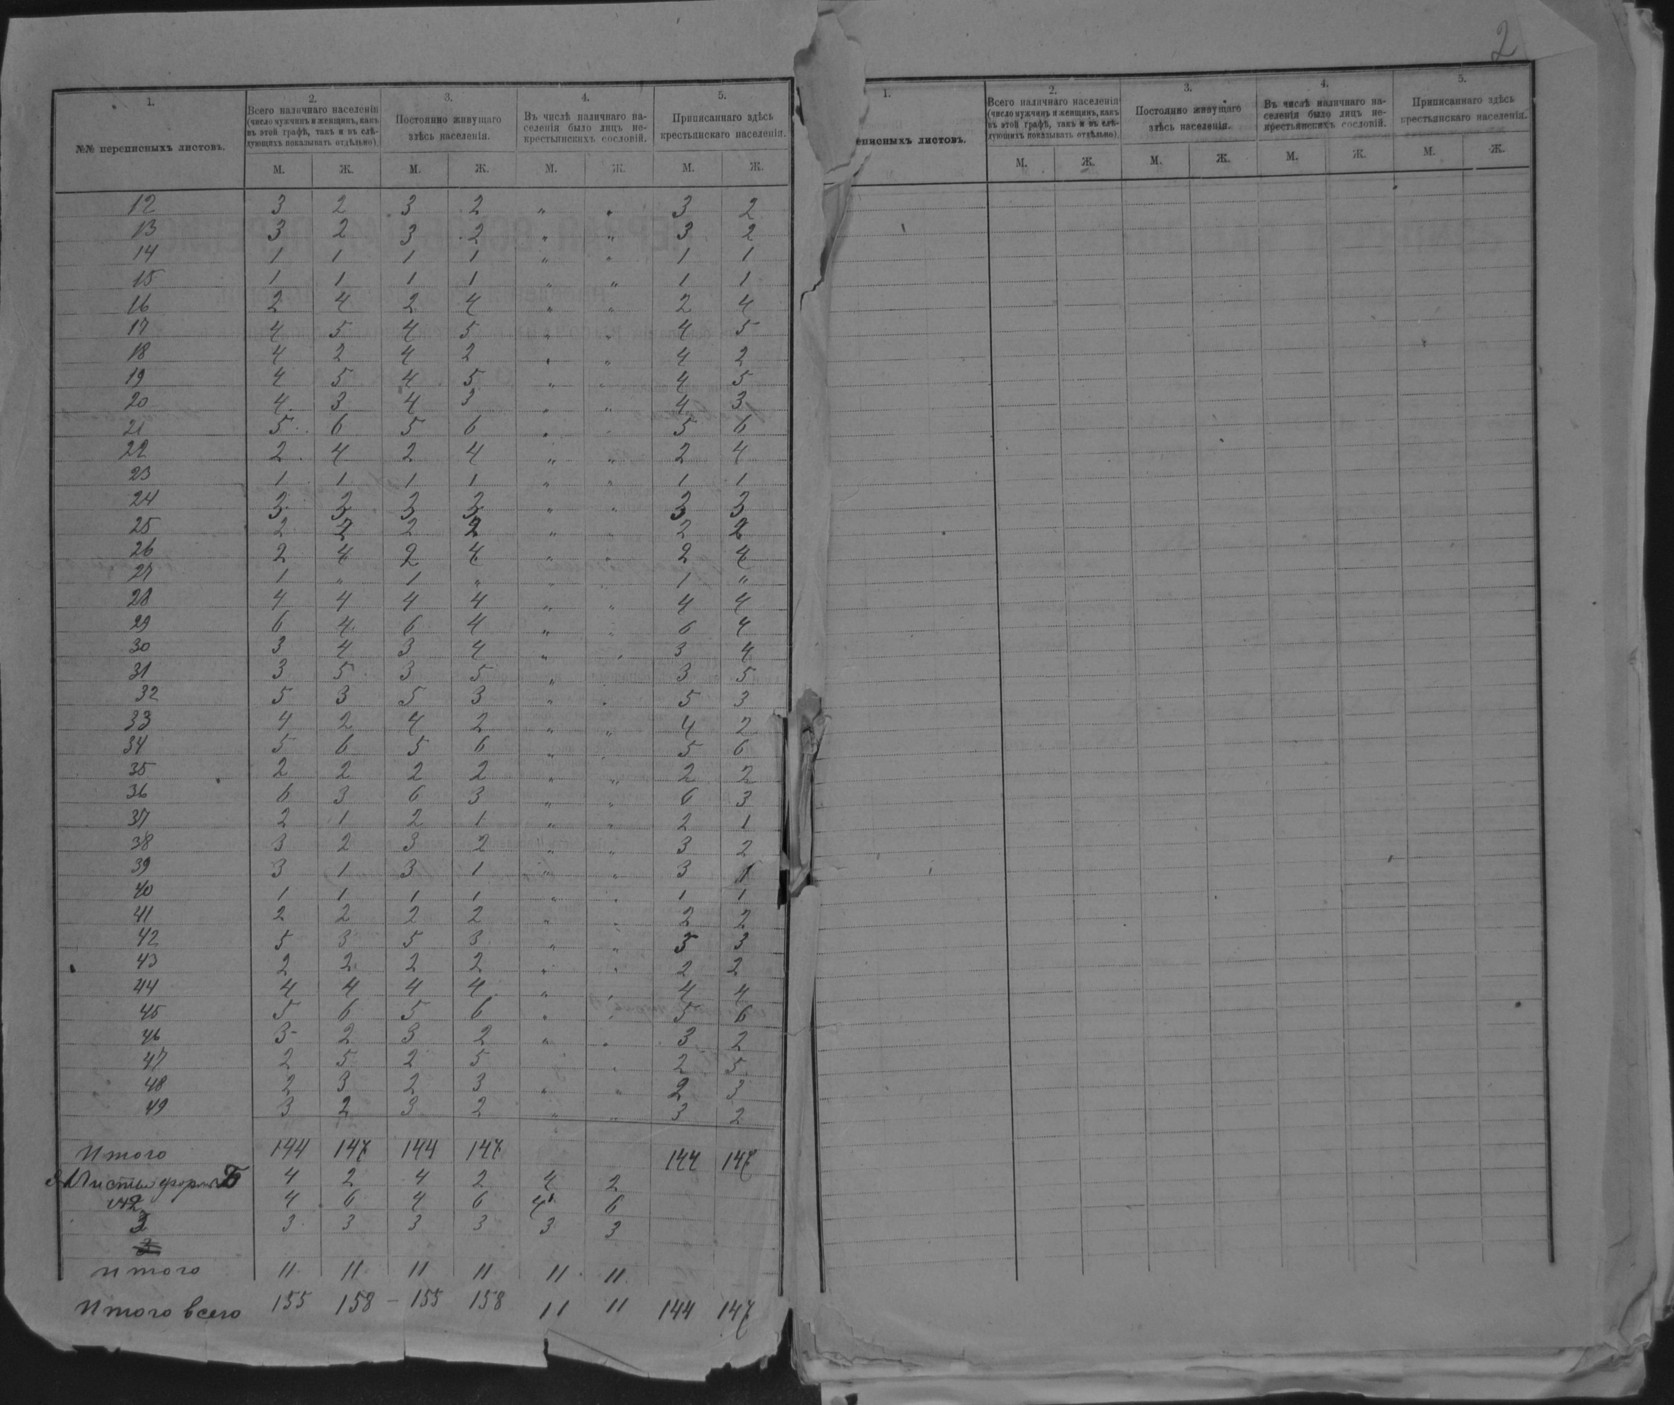 2
1.
2.
3.
4.
5.
№№ переписныхъ листовъ.
Всего наличнаго населенія
(число мужчинъ и женщинъ, какъ
въ этой графѣ, такъ и въ слѣ-
дующихъ показывать отдѣльно)
Постоянно живущаго
здѣсь населенія.
Въ числѣ наличнаго на-
селенія было лицъ не-
крестьянскихъ сословій.
Приписаннаго здѣсь
крестьянскаго населенія.
М. Ж. М. Ж. М. Ж. М. Ж.
12 3 2 3 2 „ „ 3 2
13 3 2 3 2 „ „ 3 2
14 1 1 1 1 „ „ 1 1
15 1 1 1 1 „ „ 1 1
16 2 4 2 4 „ „ 2 4
17 4 5 4 5 „ „ 4 5
18 4 2 4 2 „ „ 4 2
19 4 5 4 5 „ „ 4 5
20 4 3 4 3 „ „ 4 3
21 5 6 5 6 „ „ 5 6
22 2 4 2 4 „ „ 2 4
23 1 1 1 1 „ „ 1 1
24 3 3 3 3 „ „ 3 3
25 2 2 2 2 „ „ 2 2
26 2 4 2 4 „ „ 2 4
27 1 „ 1 „ „ „ 1 „
28 4 4 4 4 „ „ 4 4
29 6 4 6 4 „ „ 6 4
30 3 4 3 4 „ „ 3 4
31 3 5 3 5 „ „ 3 5
32 5 3 5 3 „ „ 5 3
33 4 2 4 2 „ „ 4 2
34 5 6 5 6 „ „ 5 6
35 2 2 2 2 „ „ 2 2
36 6 3 6 3 „ „ 6 3
37 2 1 2 1 „ „ 2 1
38 3 2 3 2 „ „ 3 2
39 3 1 3 1 „ „ 3 1
40 1 1 1 1 „ „ 1 1
41 2 2 2 2 „ „ 2 2
42 5 3 5 3 „ „ 5 3
43 2 2 2 2 „ „ 2 2
44 4 4 4 4 „ „ 4 4
45 5 6 5 6 „ „ 5 6
46 3 2 3 2 „ „ 3 2
47 2 5 2 5 „ „ 2 5
48 2 3 2 3 „ „ 2 3
49 3 2 3 2 „ „ 3 2
Итого 144 147 144 147 144 147
Листы формы Б 4 2 4 2 4 2
2 4 6 4 6 4 6
3 3 3 3 3 3 3
Итого 11 11 11 11 11 11
Итого всего 155 158 - 155 158 11 11 144 147
1.
2.
3.
4.
5.
еписныхъ листовъ.
Всего наличнаго населенія
(число мужчинъ и женщинъ, какъ
въ этой графѣ, такъ и въ слѣ-
дующихъ показывать отдѣльно)
Постоянно живущаго
здѣсь населенія.
Въ числѣ наличнаго на-
селенія было лицъ не-
крестьянскихъ сословій.
Приписаннаго здѣсь
крестьянскаго населенія.
М. Ж. М. Ж. М. Ж. М. Ж.